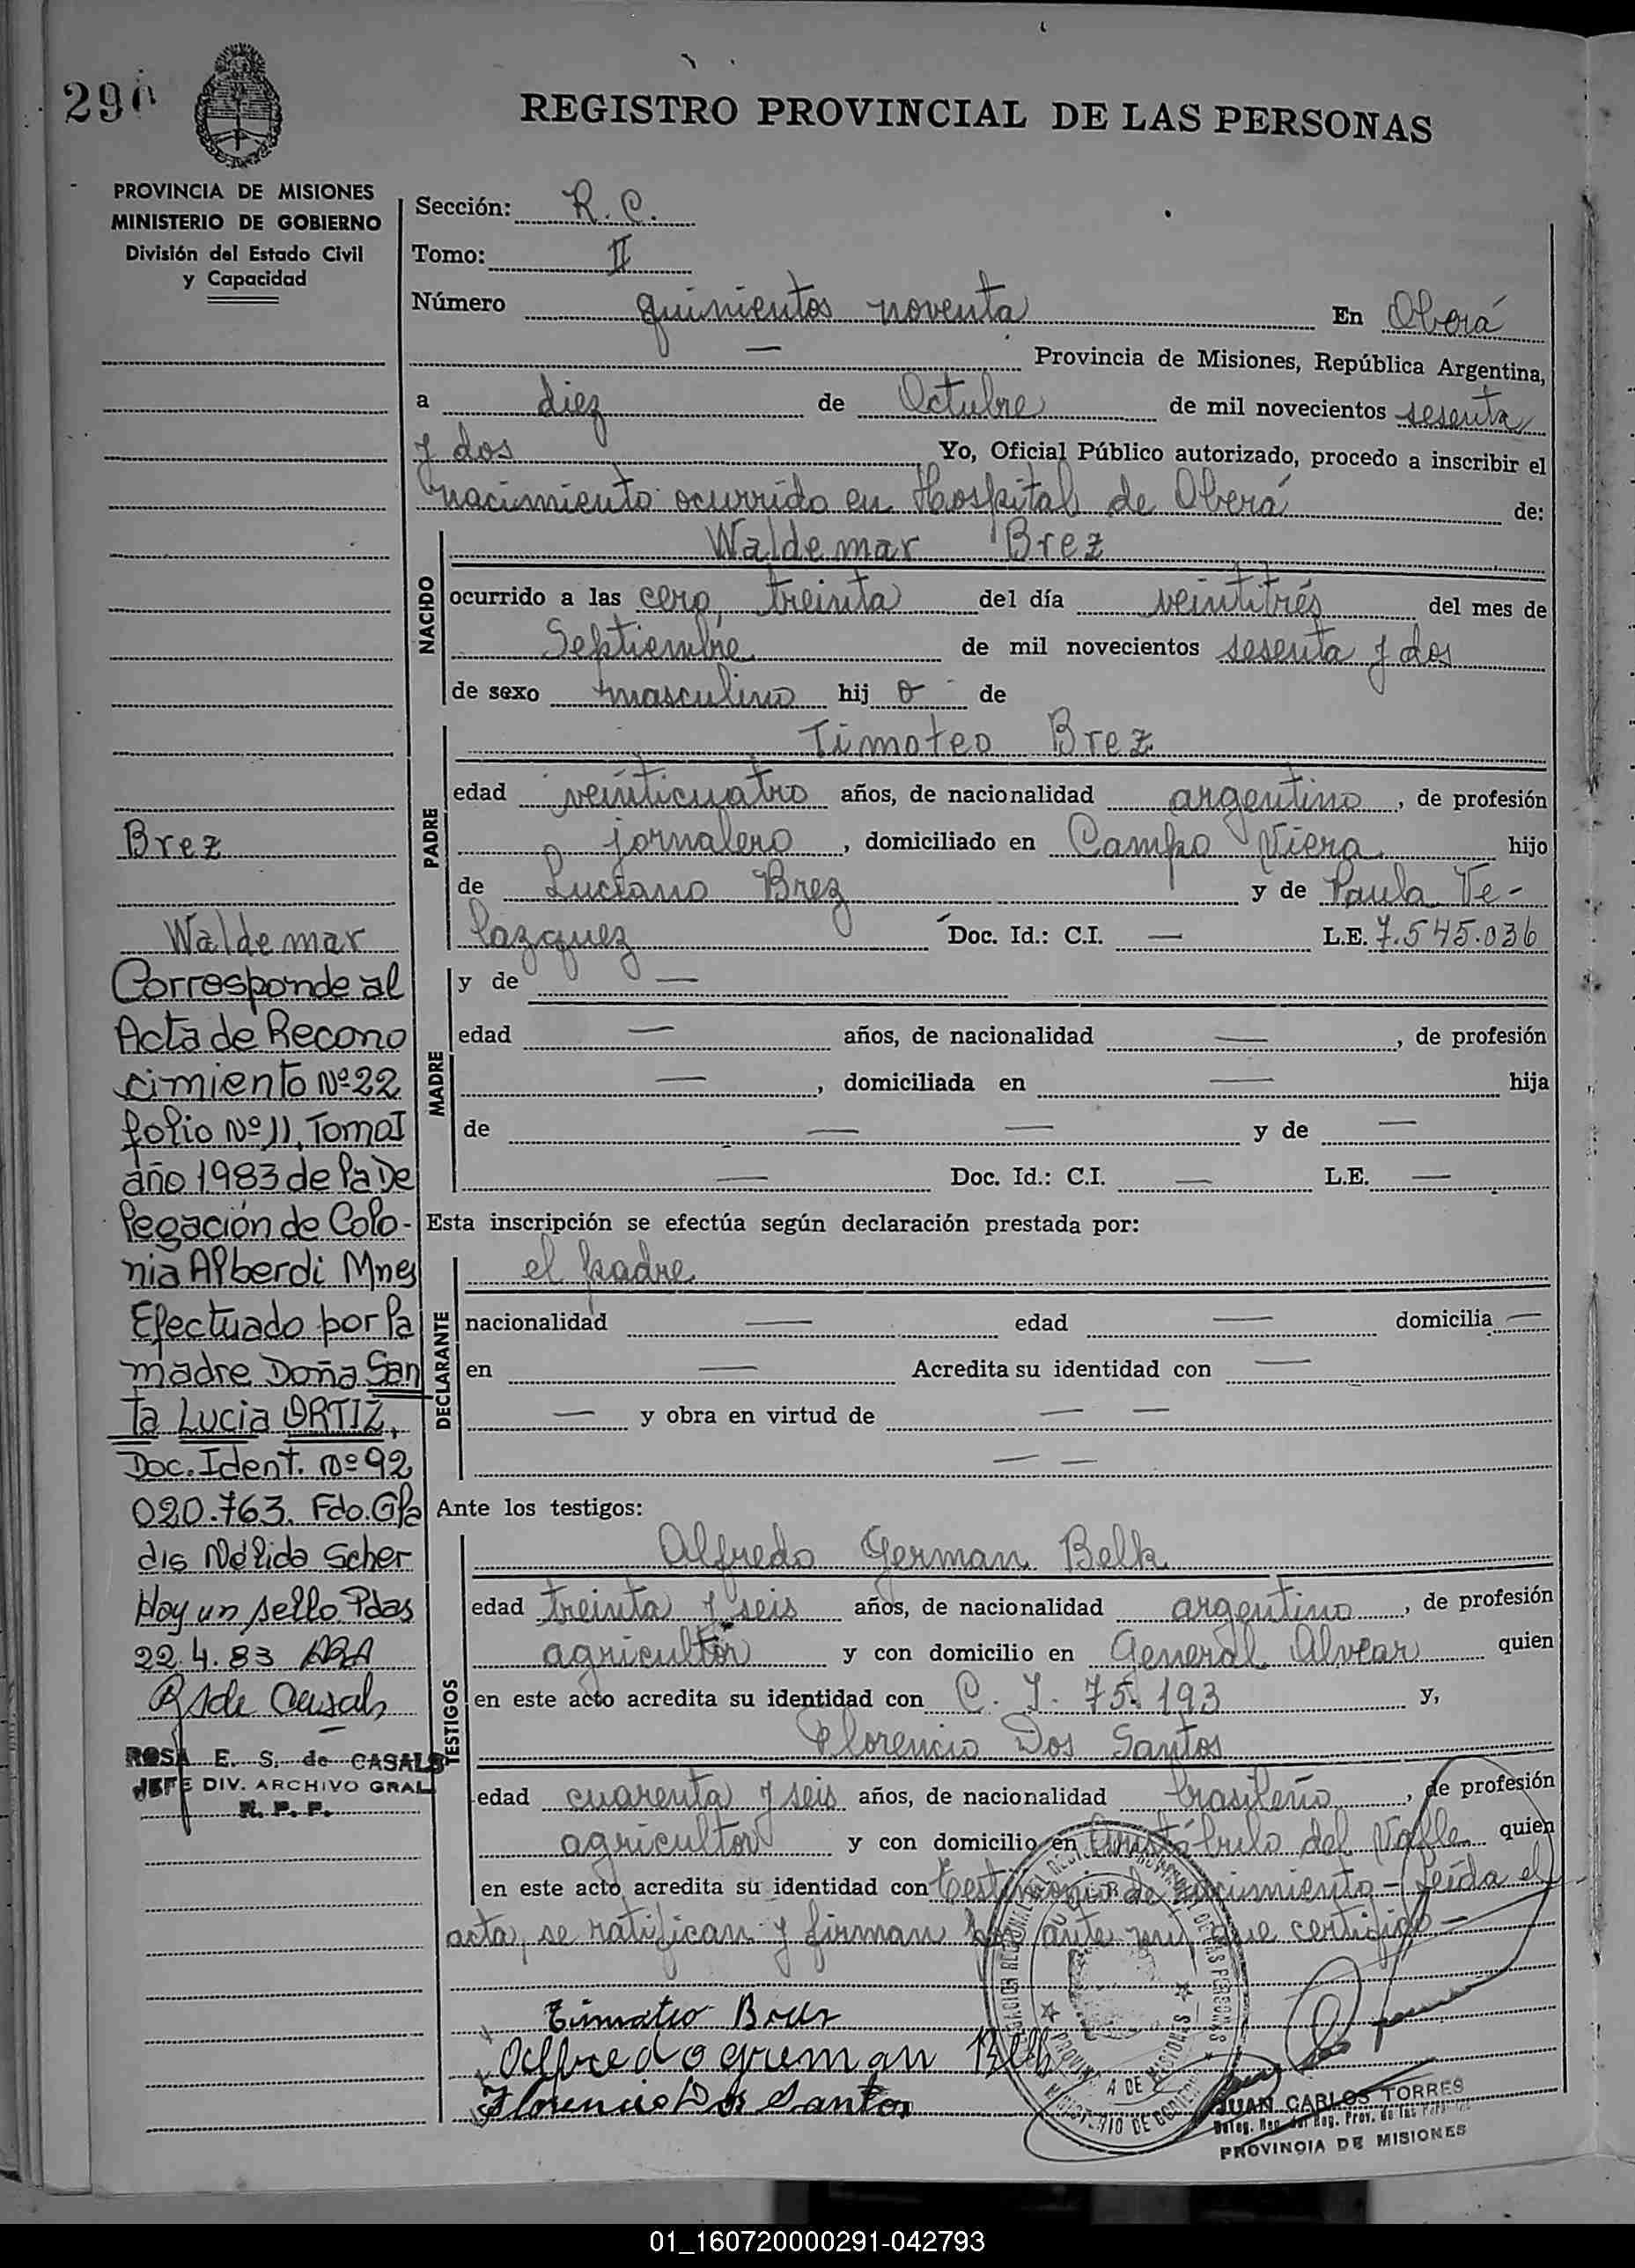 290
REGISTRO PROVINCIAL DE LAS PERSONAS
PROVINCIA DE MISIONES
MINISTERIO DE GOBIERNO
División del Estado Civil
y Capacidad
Sección: R. C.
Tomo: II
Número quinientos noventa En Oberá
— Provincia de Misiones, República Argentina,
a diez de Octubre de mil novecientos sesenta
y dos Yo, Oficial Público autorizado, procedo a inscribir el
nacimiento ocurrido en Hospital de Oberá de:
NACIDO
Waldemar Brez
ocurrido a las cero, treinta del día veintitrés del mes de
Septiembre de mil novecientos sesenta y dos
de sexo masculino hij o de
PADRE
Timoteo Brez
edad veinticuatro años, de nacionalidad argentino, de profesión
jornalero, domiciliado en Campo Viera hijo
de Luciano Brez y de Paula Ve-
lazquez Doc. Id.: C.I. — L.E. 7.545.036
MADRE
y de —
edad — años, de nacionalidad —, de profesión
—, domiciliada en — hija
de — — y de —
— Doc. Id.: C.I. — L.E. —
Esta inscripción se efectúa según declaración prestada por:
DECLARANTE
el padre
nacionalidad — edad — domicilia —
en — Acredita su identidad con —
— y obra en virtud de — —
— —
Ante los testigos:
TESTIGOS
Alfredo German Belk
edad treinta y seis años, de nacionalidad argentino, de profesión
agricultor y con domicilio en General Alvear quien
en este acto acredita su identidad con C. I. 75.193 y,
Florencio Dos Santos
edad cuarenta y seis años, de nacionalidad brasileño, de profesión
agricultor y con domicilio en Aristóbulo del Valle quien
en este acto acredita su identidad con testimonio de nacimiento - Leída el
acta, se ratifican y firman por ante mí que certifico —
Timoteo Brez
Alfredo german Belk
Florencio Dos Santos
JUAN CARLOS TORRES
PROVINCIA DE MISIONES
Brez
Waldemar
Corresponde al
Acta de Recono
cimiento Nº 22
folio Nº 11, Tomo I
año 1983 de la De
legación de Colo-
nia Alberdi Mnes
Efectuado por la
madre Doña San
ta Lucia ORTIZ,
Doc. Ident. Nº 92
020.763. Fdo. Gla
dis Nélida Scher
Hay un sello Pdas
22.4.83
R S de Casals
ROSA E. S. de CASALS
JEFE DIV. ARCHIVO GRAL
R. P. P.
01_160720000291-042793